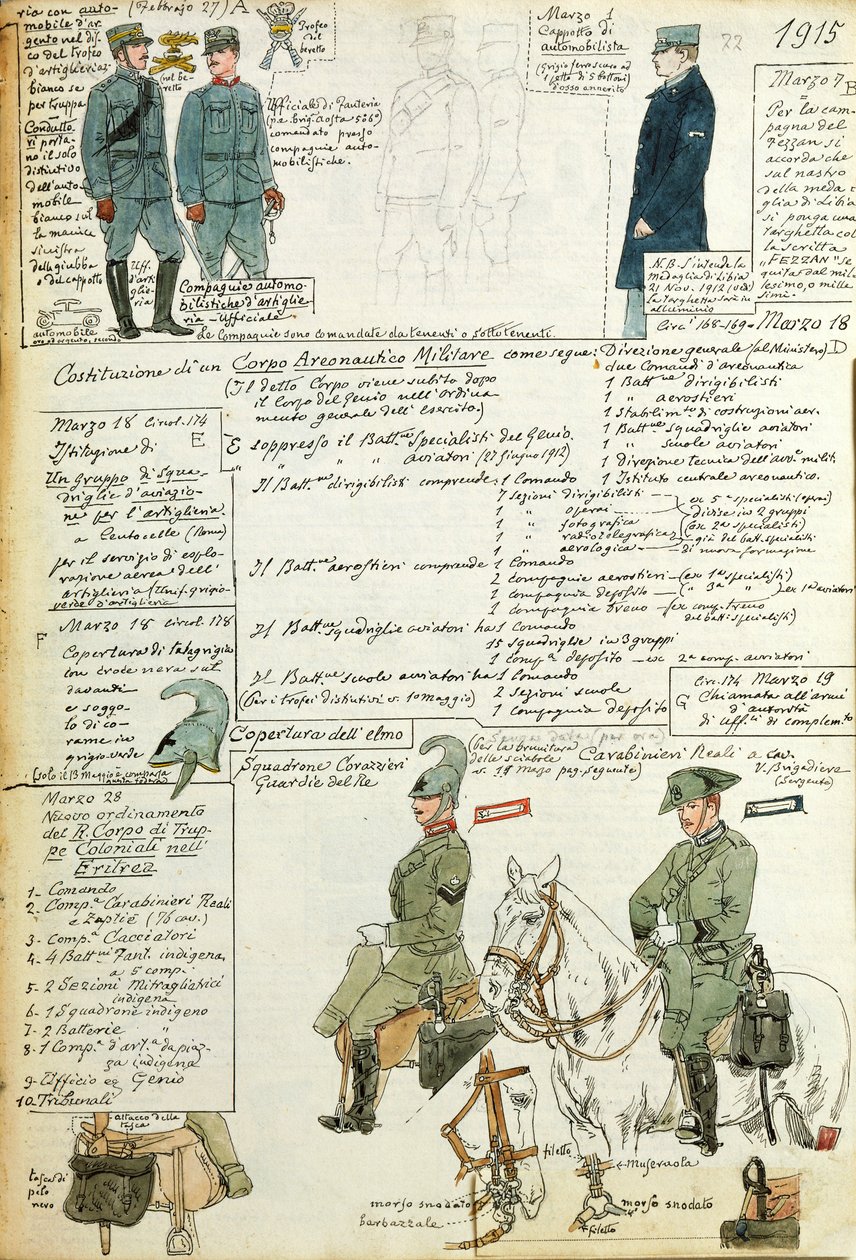 ria con auto-
mobile d'ar-
gento nel di-
sco del trofeo
d'artiglieria:
bianco se
per truppa
Condutto-
ri porta-
no il solo
distintivo
dell'auto-
mobile
bianco sul-
la manica
sinistra
della giubba
o del cappotto
automobile
oro ed argento, secondo
(Febbrajo 27) A
(nel be-
retto
Trofeo
del
berretto
Ufficiale di Fanteria
(p.e. brig. Aosta 5º6º)
comandato presso
compagnie auto-
mobilistiche.
Uff.
d'arti-
glie-
ria
Compagnie automo-
bilistiche d'artiglie-
ria - Ufficiale
Le Compagnie sono comandate da tenenti o sottotenenti.
Marzo 1
Cappotto di
automobilista
(Grigio ferro scuro ad
1 petto di 5 bottoni
d'osso annerito
22
1915
Marzo 7 B
Per la cam-
pagna del
Fezzan si
accorda che
sul nastro
della meda-
glia di Libia
si ponga una
targhetta col-
la scritta
„FEZZAN" se-
guita dal mil-
lesimo, o mille-
simi.
N.B. S'intende la
medaglia di Libia
21 Nov. 1912 (vedi)
La targhetta sarà in
alluminio
Circ. 168-169 - Marzo 18
Costituzione di un Corpo Areonautico Militare come segue:
(Il detto Corpo viene subito dopo
il Corpo del Genio nell'Ordina-
mento generale dell'Esercito.)
Direzione generale (al Ministero) D
due Comandi d'areonautica
1 Batt.ne dirigibilisti
1 „ aerostieri
1 Stabilim.to di costruzioni aer.
1 Batt.ne squadriglie aviatori
1 „ scuole aviatori
1 Direzione tecnica dell'av.ne milit.
1 Istituto centrale areonautico.
E soppresso il Batt.ne Specialisti del Genio.
„ „ „ „ aviatori (27 giugno 1912)
Il Batt.ne dirigibilisti comprende: 1 Comando
7 sezioni dirigibilisti
1 „ operai
1 „ fotografica
1 „ radiotelegrafica
1 „ aerologica
ex 5ª specialisti (operai)
divise in 2 gruppi
(ex 2ª specialisti)
già del batt. specialisti
di nuova formazione
Il Batt.ne aerostieri comprende 1 Comando
2 compagnie aerostieri - (ex 1ª specialisti)
1 compagnia deposito - ( „ 3ª „ ) ex 1ª aviatori
1 compagnia treno - (ex comp. treno
del batt. specialisti)
Il Batt.ne squadriglie aviatori ha 1 Comando
15 squadriglie in 3 gruppi
1 comp.ª deposito - ex 2ª comp. aviatori
Il Batt.ne scuole aviatori ha 1 Comando
2 sezioni scuole
1 compagnia deposito
(Per i trofei distintivi v. 1º maggio)
Marzo 18 Circol. 174
E
Istituzione di
Un Gruppo di Squa-
driglie d'aviazio-
ne per l'artiglieria
a Centocelle (Roma)
per il servizio di esplo-
razione aerea dell'
artiglieria (Unif. grigio-
verde d'artiglieria
F
Marzo 18 circol. 178
Copertura di tela grigia
con croce nera sul
davanti
e soggo-
lo di co-
rame in
grigio-verde
(solo il 13 Maggio è comparsa
Copertura dell'elmo
Squadrone Corazzieri
Guardie del Re
Circ. 174 Marzo 19
G Chiamata all'armi
d'autorità
di uff.li di complem.to
Senza data (per ora)
(per la brunitura
delle sciabole
v. 15 Marzo pag. seguente)
Carabinieri Reali a cav.
V. Brigadiere
(Sergente)
Marzo 28
Nuovo ordinamento
del R. Corpo di Trup-
pe Coloniali nell'
Eritrea
1- Comando
2- Comp.ª Carabinieri Reali
e Zaptié (76 cav.)
3- Comp.ª Cacciatori
4- 4 Batt.ni Fant. indigena
a 5 comp.
5- 2 Sezioni Mitragliatrici
indigena
6- 1 Squadrone indigeno
7- 2 Batterie „
8- 1 Comp.ª d'art.ª da piaz-
za indigena
9- Ufficio del Genio
10- Tribunali
attacco della
tasca
tasca di
pelo
nero
morso snodato
barbazzale
filetto
museruola
morso snodato
filetto